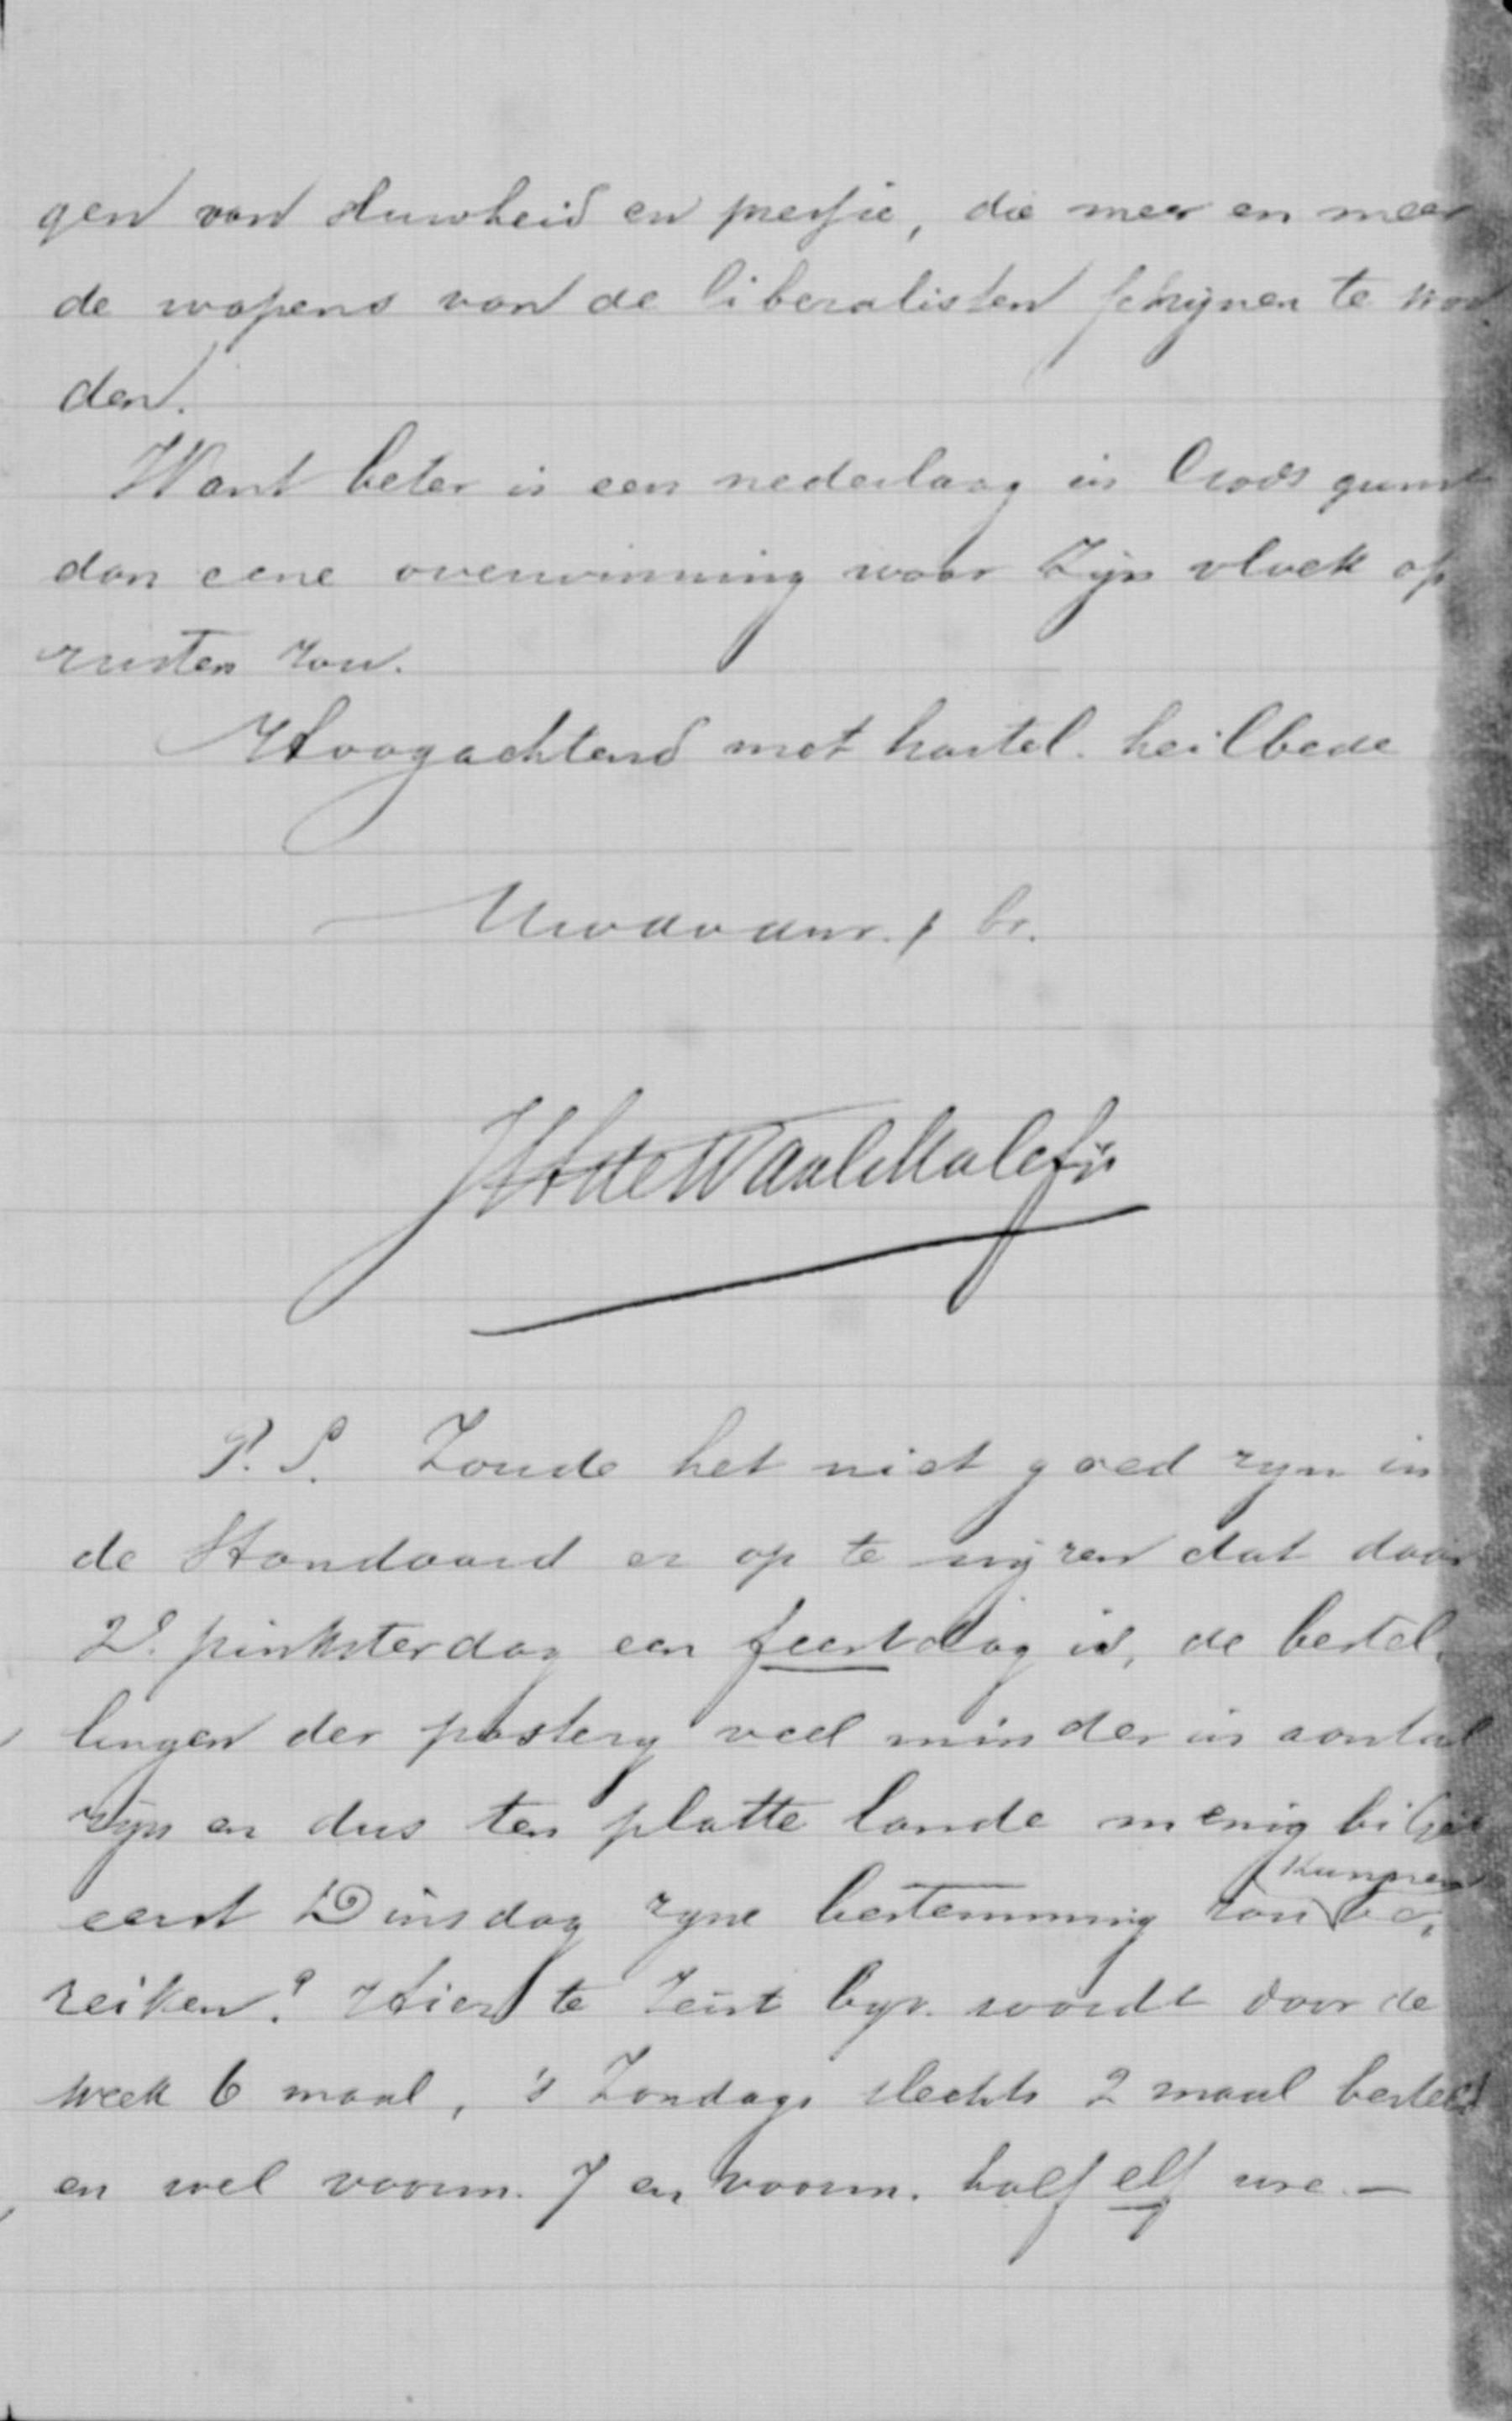 gen van sluwheid en pressie, die meer en meer
de wapens van de liberalisten schijnen te wor
den.
Want beter is een nederlaag in Gods gunst
dan eene overwinning waar Zijn vloek op
rusten zou.
Hoogachtend met hartel. heilbede
Uwdvdnr. & br.
JHdeWaalMalefijt
P.S. Zoude het niet goed zyn in
de Standaard er op te wijzen dat daar
2e pinksterdag een feestdag is, de bestel
lingen der postery veel minder in aantal
zijn en dus ten platte lande menig biljet
eerst Dinsdag zyne bestemming zou kunnen be
reiken? Hier te Zeist byv. wordt door de
week 6 maal, 's Zondags slechts 2 maal besteld
en wel voorm. 7 en voorm. half elf ure. —